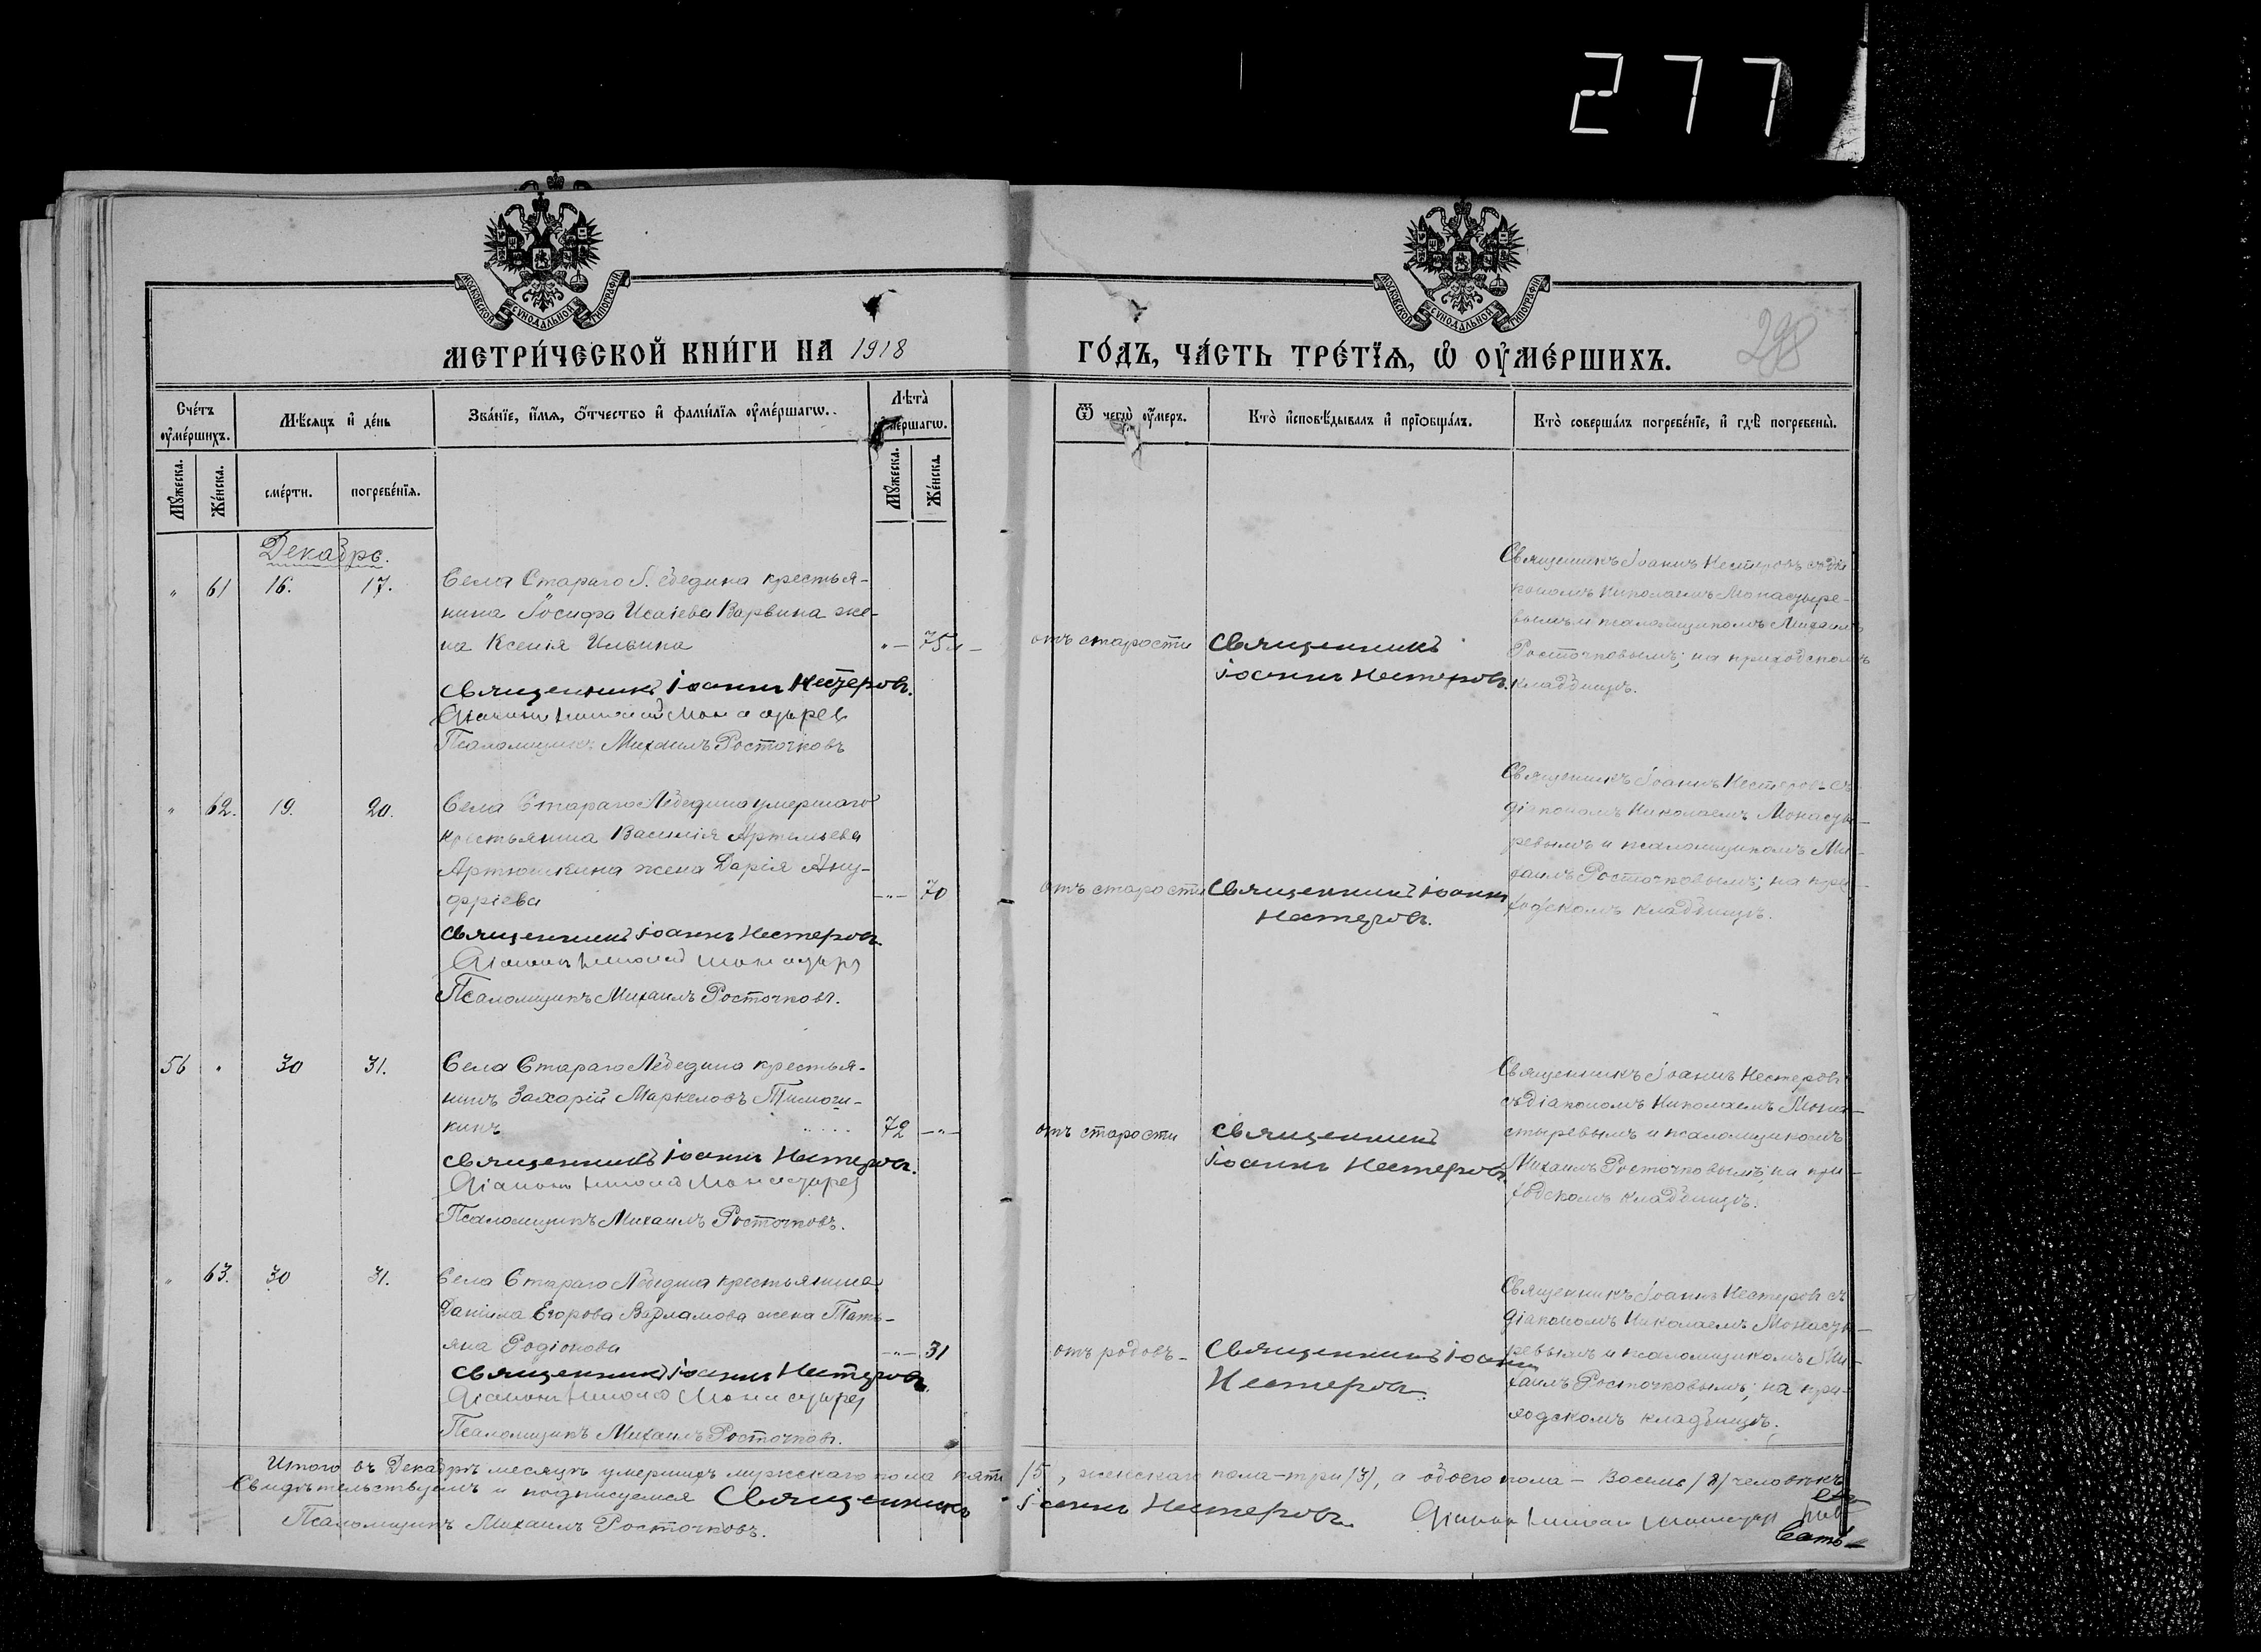 277
МОСКОВСКОЙ СУНОДАЛЬНОЙ ТИПОГРАФІИ
МОСКОВСКОЙ СУНОДАЛЬНОЙ ТИПОГРАФІИ
298
МЕТРИ́ЧЕСКОЙ КНИ́ГИ НА 1918
ГО́ДЪ, ЧА́СТЬ ТРЕ́ТЇѦ, Ѽ ОУ҆МЕ́РШИХЪ.
Сче́тъ оу҆ме́ршихъ.
Мѣ́сѧцъ и҆ де́нь
Зва́нїе, и҆́мѧ, ѻ҆́тчество и҆ фами́лїѧ оу҆ме́ршагѡ.
Лѣ́та̀ оу҆ме́ршагѡ.
Ѿ чегѡ̀ оу҆́меръ.
Кто̀ и҆сповѣ́дывалъ и҆ прїѡбща́лъ.
Кто̀ соверша́лъ погребе́нїе, и҆ гдѣ̀ погребены̀.
Мꙋ́жеска.
Же́нска.
сме́рти.
погребе́нїѧ.
Мꙋ́жеска.
Же́нска.
Декабрь.
" 61 16. 17.
Села Стараго Лебедина крестья-
нина Іосифа Исаіева Варвина же-
на Ксенія Ильина "— 75л—
Священникъ Іоаннъ Нестеровъ.
Діаконъ Николай Монастырев
Псаломщикъ Михаилъ Росточковъ
отъ старости
Священникъ
Іоаннъ Нестеровъ.
Священникъ Іоаннъ Нестеровъ съ діа
кономъ Николаемъ Монастыре-
вымъ и псаломщикомъ Михаиломъ
Росточковымъ; на приходскомъ
кладбищѣ.
" 62. 19. 20.
Села Стараго Лебедина умершаго
крестьянина Василія Артемьева
Артюшкина жена Дарія Ану-
фріева —"— 70
Священникъ Іоаннъ Нестеровъ
Діаконъ Николай Монастыр
Псаломщикъ Михаилъ Росточковъ.
отъ старости
Священникъ Іоаннъ
Нестеровъ.
Священникъ Іоаннъ Нестеровъ съ
діакономъ Николаемъ Монасты-
ревымъ и псаломщикомъ Ми-
хаилъ Росточковымъ; на при-
ходскомъ кладбищѣ.
56 " 30 31.
Села Стараго Лебедина крестья-
нинъ Захарій Маркеловъ Тимош-
кинъ 72 —"—
Священникъ Іоаннъ Нестеровъ.
Діаконъ Николай Монастырев
Псаломщикъ Михаилъ Росточковъ.
отъ старости
Священникъ
Іоаннъ Нестеровъ
Священникъ Іоаннъ Нестеровъ
съ діакономъ Николаемъ Мона-
стыревымъ и псаломщикомъ
Михаилъ Росточковымъ; на при-
ходскомъ кладбищѣ.
" 63. 30 31.
Села Стараго Лебедина крестьянина
Даніила Егорова Варламова жена Тать-
яна Родіонова —"— 31
Священникъ Іоаннъ Нестеровъ.
Діаконъ Николай Монастырев
Псаломщикъ Михаилъ Росточковъ.
отъ родовъ—
Священникъ Іоаннъ
Нестеровъ.
Священникъ Іоаннъ Нестеровъ съ
діакономъ Николаемъ Монасты-
ревымъ и псаломщикомъ Ми-
хаилъ Росточковымъ; на при-
ходскомъ кладбищѣ.
Итого въ Декабрѣ месяцѣ умершихъ мужскаго пола пять /5/, женскаго пола—три /3/, а обоего пола—восемь /8/ человѣкъ
Свидѣтельствуемъ и подписуемся Священникъ Іоаннъ Нестеровъ Діаконъ Николай Монастырев
Псаломщикъ Михаилъ Росточковъ.